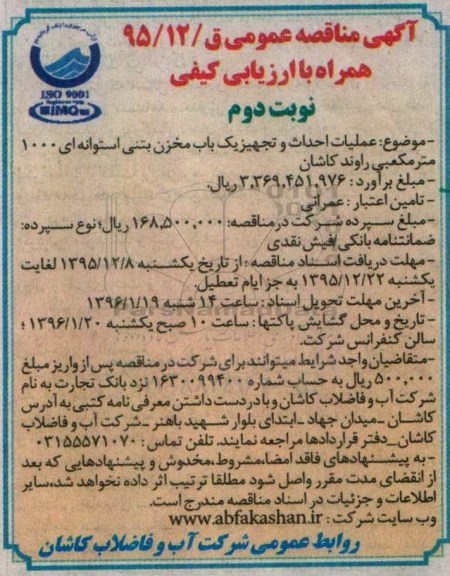 آگهی مناقصه عمومی ق/۹۵/۱۲
همراه با ارزیابی کیفی
نوبت دوم
ISO 9001
IMQ
-موضوع: عملیات احداث و تجهیز یک باب مخزن بتنی استوانه ای ۱۰۰۰
مترمکعبی راوند کاشان
-مبلغ برآورد: ۳.۳۶۹.۴۵۱.۹۷۶ ریال.
-تامین اعتبار: عمرانی
-مبلغ سپرده شرکت در مناقصه: ۱۶۸,۵۰۰,۰۰۰ ریال؛ نوع سپرده:
ضمانتنامه بانکی/فیش نقدی
-مهلت دریافت اسناد مناقصه: از تاریخ یکشنبه ۱۳۹۵/۱۲/۸ لغایت
یکشنبه ۱۳۹۵/۱۲/۲۲ به جز ایام تعطیل.
-آخرین مهلت تحویل اسناد: ساعت ۱۴ شنبه ۱۳۹۶/۱/۱۹
-تاریخ و محل گشایش پاکتها: ساعت ۱۰ صبح یکشنبه ۱۳۹۶/۱/۲۰؛
سالن کنفرانس شرکت.
-متقاضیان واجد شرایط میتوانند برای شرکت در مناقصه پس از واریز مبلغ
۵۰۰,۰۰۰ ریال به حساب شماره ۱۶۳۰۰۹۹۴۰۰ نزد بانک تجارت به نام
شرکت آب و فاضلاب کاشان و با در دست داشتن معرفی نامه کتبی به آدرس
کاشان _میدان جهاد _ابتدای بلوار شهید باهنر _شرکت آب و فاضلاب
کاشان_دفتر قراردادها مراجعه نمایند. تلفن تماس: ۰۳۱۵۵۵۷۱۰۷۰
-به پیشنهادهای فاقد امضا،مشروط،مخدوش و پیشنهادهایی که بعد
از انقضای مدت مقرر واصل شود مطلقا ترتیب اثر داده نخواهد شد،سایر
اطلاعات و جزئیات در اسناد مناقصه مندرج است.
وب سایت شرکت: www.abfakashan.ir
روابط عمومی شرکت آب و فاضلاب کاشان